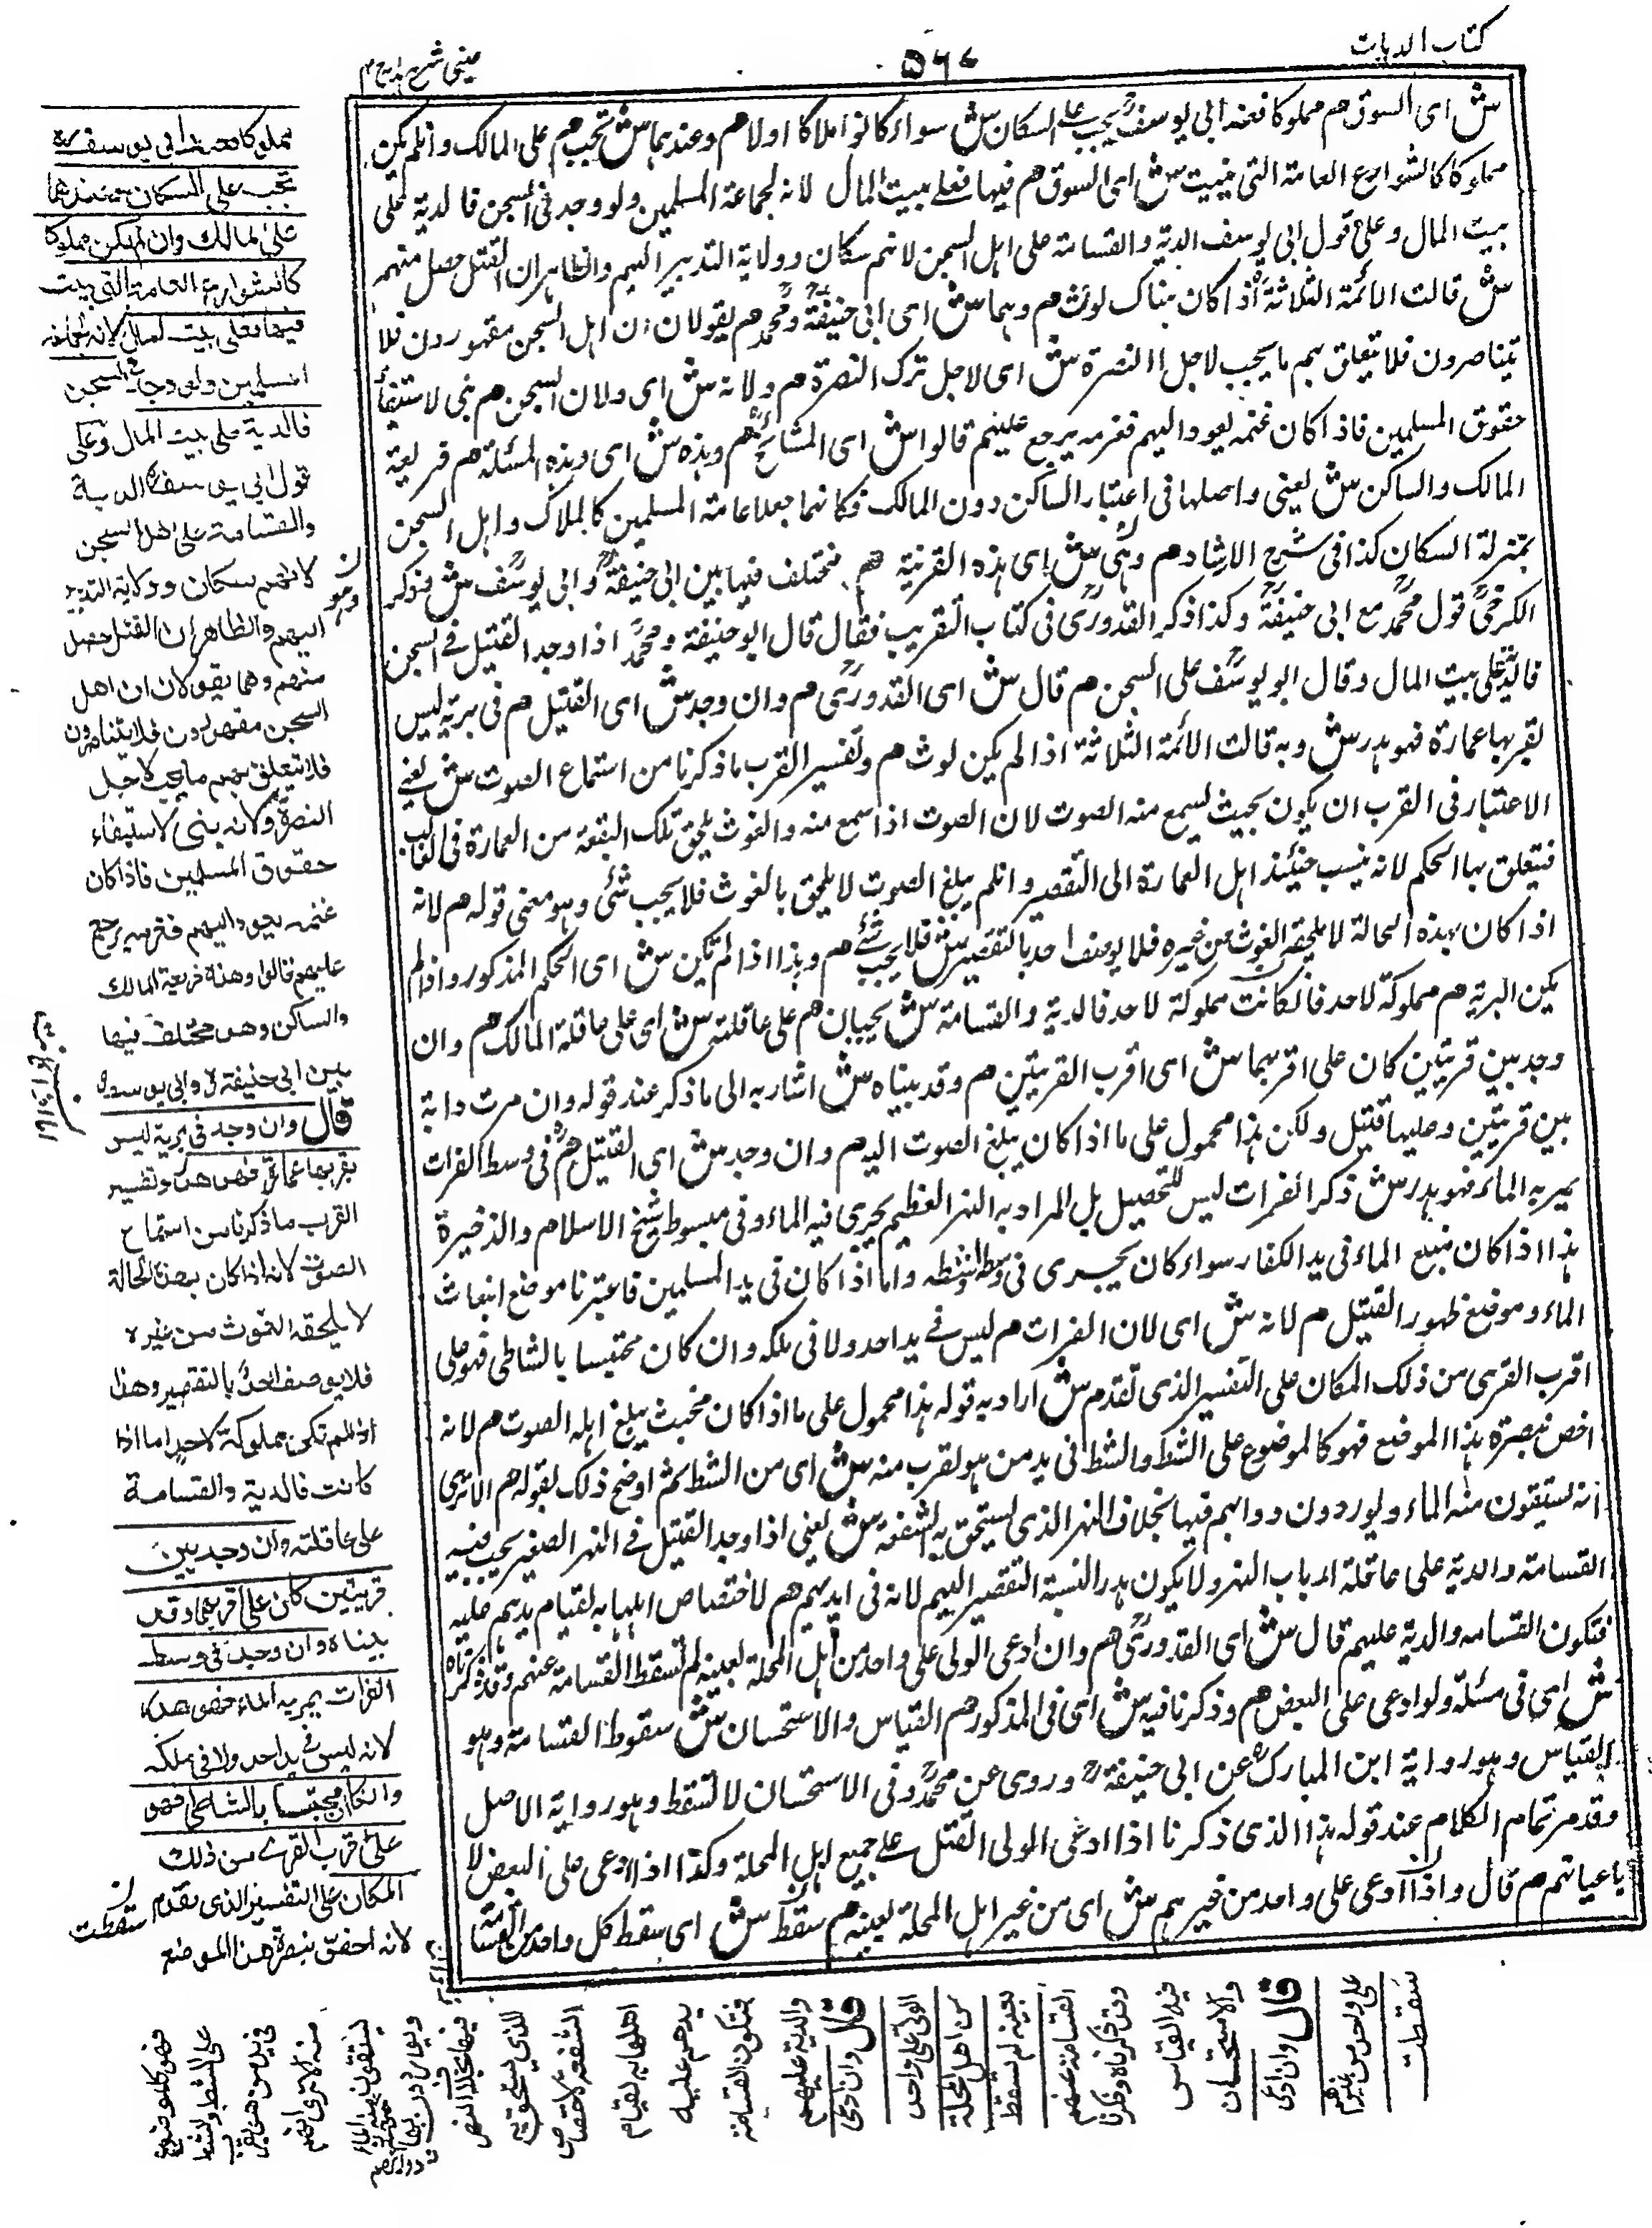 كتاب الديات
٥٦٧
عينى شرح هدايه ج م
ش اى السوق هم مملوكا فعند ابى يوسف تجب على السكان ش سواء كانوا ملاكا اولا هم وعندهما ش تجب هم على المالك وان لم يكن
مملوكا كالشوارع العامة التى بنيت ش اى السوق هم فيها فعلى بيت المال لانه لجماعة المسلمين ولو وجد فى السجن فالدية على
بيت المال وعلى قول ابى يوسف الدية والقسامة على اهل السجن لانهم سكان وولاية التدبير اليهم والظاهر ان القتل حصل منهم
ش قالت الائمة الثلاثة اذا كان هناك لوث هم وهما ش اى ابى حنيفة ومحمد هم يقولان ان اهل السجن مقهورون فلا
يتناصرون فلا يتعلق بهم ما يجب لاجل النصرة ش اى لاجل ترك النصرة هم ولانه ش اى ولان السجن هم بنى لاستيفاء
حقوق المسلمين فاذا كان غنمه يعود اليهم فغرمه يرجع عليهم قالوا ش اى المشائخ هم وهذه ش اى وهذه المسئلة هم فريعة
المالك والساكن ش يعنى واصلها فى اعتبار الساكن دون المالك فكانهما جعلا عامة المسلمين كالملاك واهل السجن
بمنزلة السكان كذا فى شرح الارشاد هم وهى ش اى هذه القرينة هم مختلف فيها بين ابى حنيفة وابى يوسف ش فذكر
الكرخى قول محمد مع ابى حنيفة وكذا ذكر القدورى فى كتاب التقريب فقال قال ابو حنيفة ومحمد اذا وجد القتيل فى السجن
فالدية على بيت المال وقال ابو يوسف على السجن هم قال ش اى القدورى هم وان وجد ش اى القتيل هم فى برية ليس
بقربها عمارة فهو هدر ش وبه قالت الائمة الثلاثة اذا لم يكن لوث هم وتفسير القرب ما ذكرنا من استماع الصوت ش يعنى
الاعتبار فى القرب ان يكون بحيث يسمع منه الصوت لان الصوت اذا سمع منه والغوث يلحق تلك البقعة من العمارة فى الغالب
فيتعلق بها الحكم لانه ينسب حينئذ اهل العمارة الى التقصير وان لم يبلغ الصوت لا يلحق بالغوث فلا يجب شئ وهو معنى قوله هم لانه
اذا كان بهذه الحالة لا يلحقه الغوث من غيره فلا يوصف احد بالتقصير ش فلا يجب شئ هم وهذا اذا لم تكن ش اى الحكم المذكور واذا لم
يكن البرية هم مملوكة لاحد فان كانت مملوكة لاحد فالدية والقسامة ش يجبان هم على عاقلته ش اى على عاقلة المالك هم وان
وجد بين قريتين كان على اقربهما ش اى اقرب القريتين هم وقد بيناه ش اشار به الى ما ذكر عند قوله وان مرت دابة
بين قريتين وعليها قتيل ولكن هذا محمول على ما اذا كان يبلغ الصوت اليه هم وان وجد ش اى القتيل هم فى وسط الفرات
يمر به الماء فهو هدر ش ذكر الفرات ليس للتحصيل بل المراد به النهر العظيم يجرى فيه الماء وفى مبسوط شيخ الاسلام والذخيرة
هذا اذا كان منبع الماء فى يد الكفار سواء كان يجرى فى وسطه او شطه واما اذا كان فى يد المسلمين فاعتبرنا موضع انبعاث
الماء وموضع ظهور القتيل هم لانه ش اى لان الفرات هم ليس فى يد احد ولا فى ملكه وان كان محتبسا بالشاطى فهو على
اقرب القرى من ذلك المكان على التفسير الذى تقدم ش اراد به قوله هذا محمول على ما اذا كان بحيث يبلغ اهله الصوت هم لانه
اخص بنصرة هذا الموضع فهو كالموضوع على الشط والشط فى يد من هو لقرب منه ش اى من الشط ثم اوضح ذلك بقوله هم الا ترى
انه يستقون منه الماء ويوردون دوابهم فيها بخلاف النهر الذى يستحق به الشفعة ش يعنى اذا وجد القتيل فى النهر الصغير يجب فيه
القسامة والدية على عاقلة ارباب النهر ولا يكون هدرا لنسبة التقصير اليهم لانه فى ايديهم هم لاختصاص اهلها به لقيام يدهم عليه
فتكون القسامه والدية عليهم قال ش اى القدورى هم وان ادعى الولى على واحد من اهل المحلة بعينه لم تسقط القسامة عنهم وقد ذكرناه
ش اى فى مسئلة ولو ادعى على البعض هم وذكرنا فيه ش اى فى المذكور هم القياس والاستحسان ش سقوط القسامة وهو
القياس وهو رواية ابن المبارك عن ابى حنيفة وروى عن محمد وفى الاستحسان لا تسقط وهو رواية الاصل
وقد مر تمام الكلام عند قوله هذا الذى ذكرنا اذا ادعى الولى القتل على جميع اهل المحلة وكذا اذا ادعى على البعض لا
باعيانهم هم قال واذا ادعى على واحد من غيرهم ش اى من غير اهل المحلة بعينه هم سقط ش اى سقط كل واحد من القسامة
مملوكا فعند ابى يوسف
تجب على السكان وعندهما
على المالك وان لم يكن مملوكا
كالشوارع العامة التى بنيت
فيها فعلى بيت المال لانه لجماعة
المسلمين ولو وجد فى السجن
فالدية على بيت المال وعلى
قول ابى يوسف الدية
والقسامة على اهل السجن
لانهم سكان وولاية التدبير
اليهم والظاهر ان القتل حصل
منهم وهما يقولان ان اهل
السجن مقهورون فلا يتناصرون
فلا يتعلق بهم ما يجب لاجل
النصرة ولانه بنى لاستيفاء
حقوق المسلمين فاذا كان
غنمه يعود اليهم فغرمه يرجع
عليهم قالوا وهذه فريعة المالك
والساكن وهى مختلف فيها
بين ابى حنيفة وابى يوسف
قال وان وجد فى برية ليس
بقربها عمارة فهو هدر وتفسير
القرب ما ذكرنا من استماع
الصوت لانه اذا كان بهذه الحالة
لا يلحقه الغوث من غيره
فلا يوصف احد بالتقصير وهذا
اذا لم تكن مملوكة لاحد اما اذا
كانت فالدية والقسامة
على عاقلته وان وجد بين
قريتين كان على اقربهما وقد
بيناه وان وجد فى وسط
الفرات يمر به الماء فهو هدر
لانه ليس فى يد احد ولا فى ملكه
وان كان محتبسا بالشاطى فهو
على اقرب القرى من ذلك
المكان على التفسير الذى تقدم
لانه اخص بنصرة هذا الموضع
ن سقطت
فهو كالموضوع
على الشط والشط
فى يد من هو يقرب
منه الا ترى انهم
يستقون منه الماء
ويوردون
دوابهم
فيها بخلاف النهر
الذى يستحق به
الشفعة لاختصاص
اهلها به لقيام
يدهم عليه
فتكون القسامة
والدية عليهم
قال وان ادعى
الولى على واحد
من اهل المحلة
بعينه لم تسقط
القسامة عنهم
وقد ذكرناه وذكرنا
فيه القياس
والاستحسان
قال وان ادعى
على واحد من غيرهم
سقطت